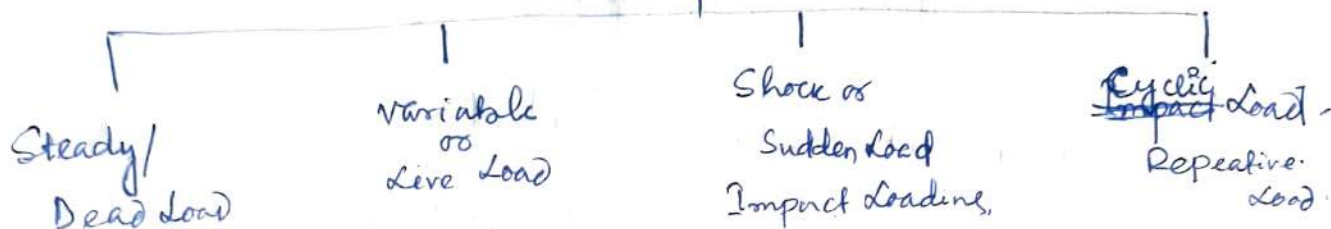 Steady/
Dead Load
Variable
or
Live Load
Shock or
Sudden Load
Impact Loading,
Cyclic Load
Repeative
Load.